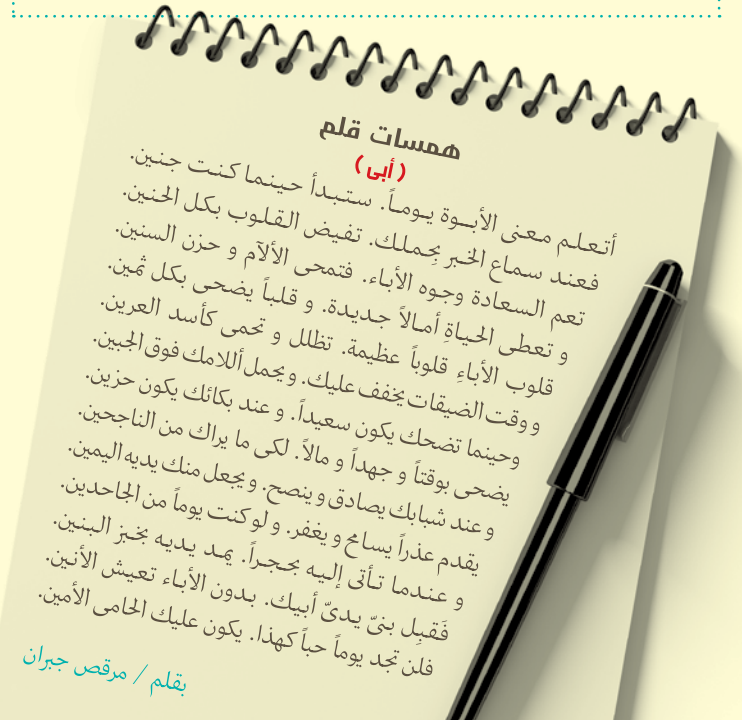 همسات قلم
( أبى )
أتعلم معنى الأبوة يوماً. ستبدأ حينما كنت جنين.
فعند سماع الخبر بِحملك. تفيض القلوب بكل الحنين.
تعم السعادة وجوه الأباء. فتمحى الألآم و حزن السنين.
و تعطى الحياةِ أمالاً جديدة. و قلباً يضحى بكل ثمين.
قلوب الأباءِ قلوباً عظيمة. تظلل و تحمى كأسد العرين.
و وقت الضيقات يخفف عليك. و يحمل أللامك فوق الجبين.
وحينما تضحك يكون سعيداً. و عند بكائك يكون حزين.
يضحى بوقتاً و جهداً و مالاً. لكى ما يراك من الناجحين.
و عند شبابك يصادق و ينصح. و يجعل منك يديه اليمين.
يقدم عذراً يسامح و يغفر. و لو كنت يوماً من الجاحدين.
و عندما تأتى إليه بحجراً. يمد يديه بخبز البنين.
فَقبِل بنىّ يدىّ أبيك. بدون الأباء تعيش الأنين.
فلن تجد يوماً حباً كهذا. يكون عليك الحامى الأمين.
بقلم / مرقص جبران